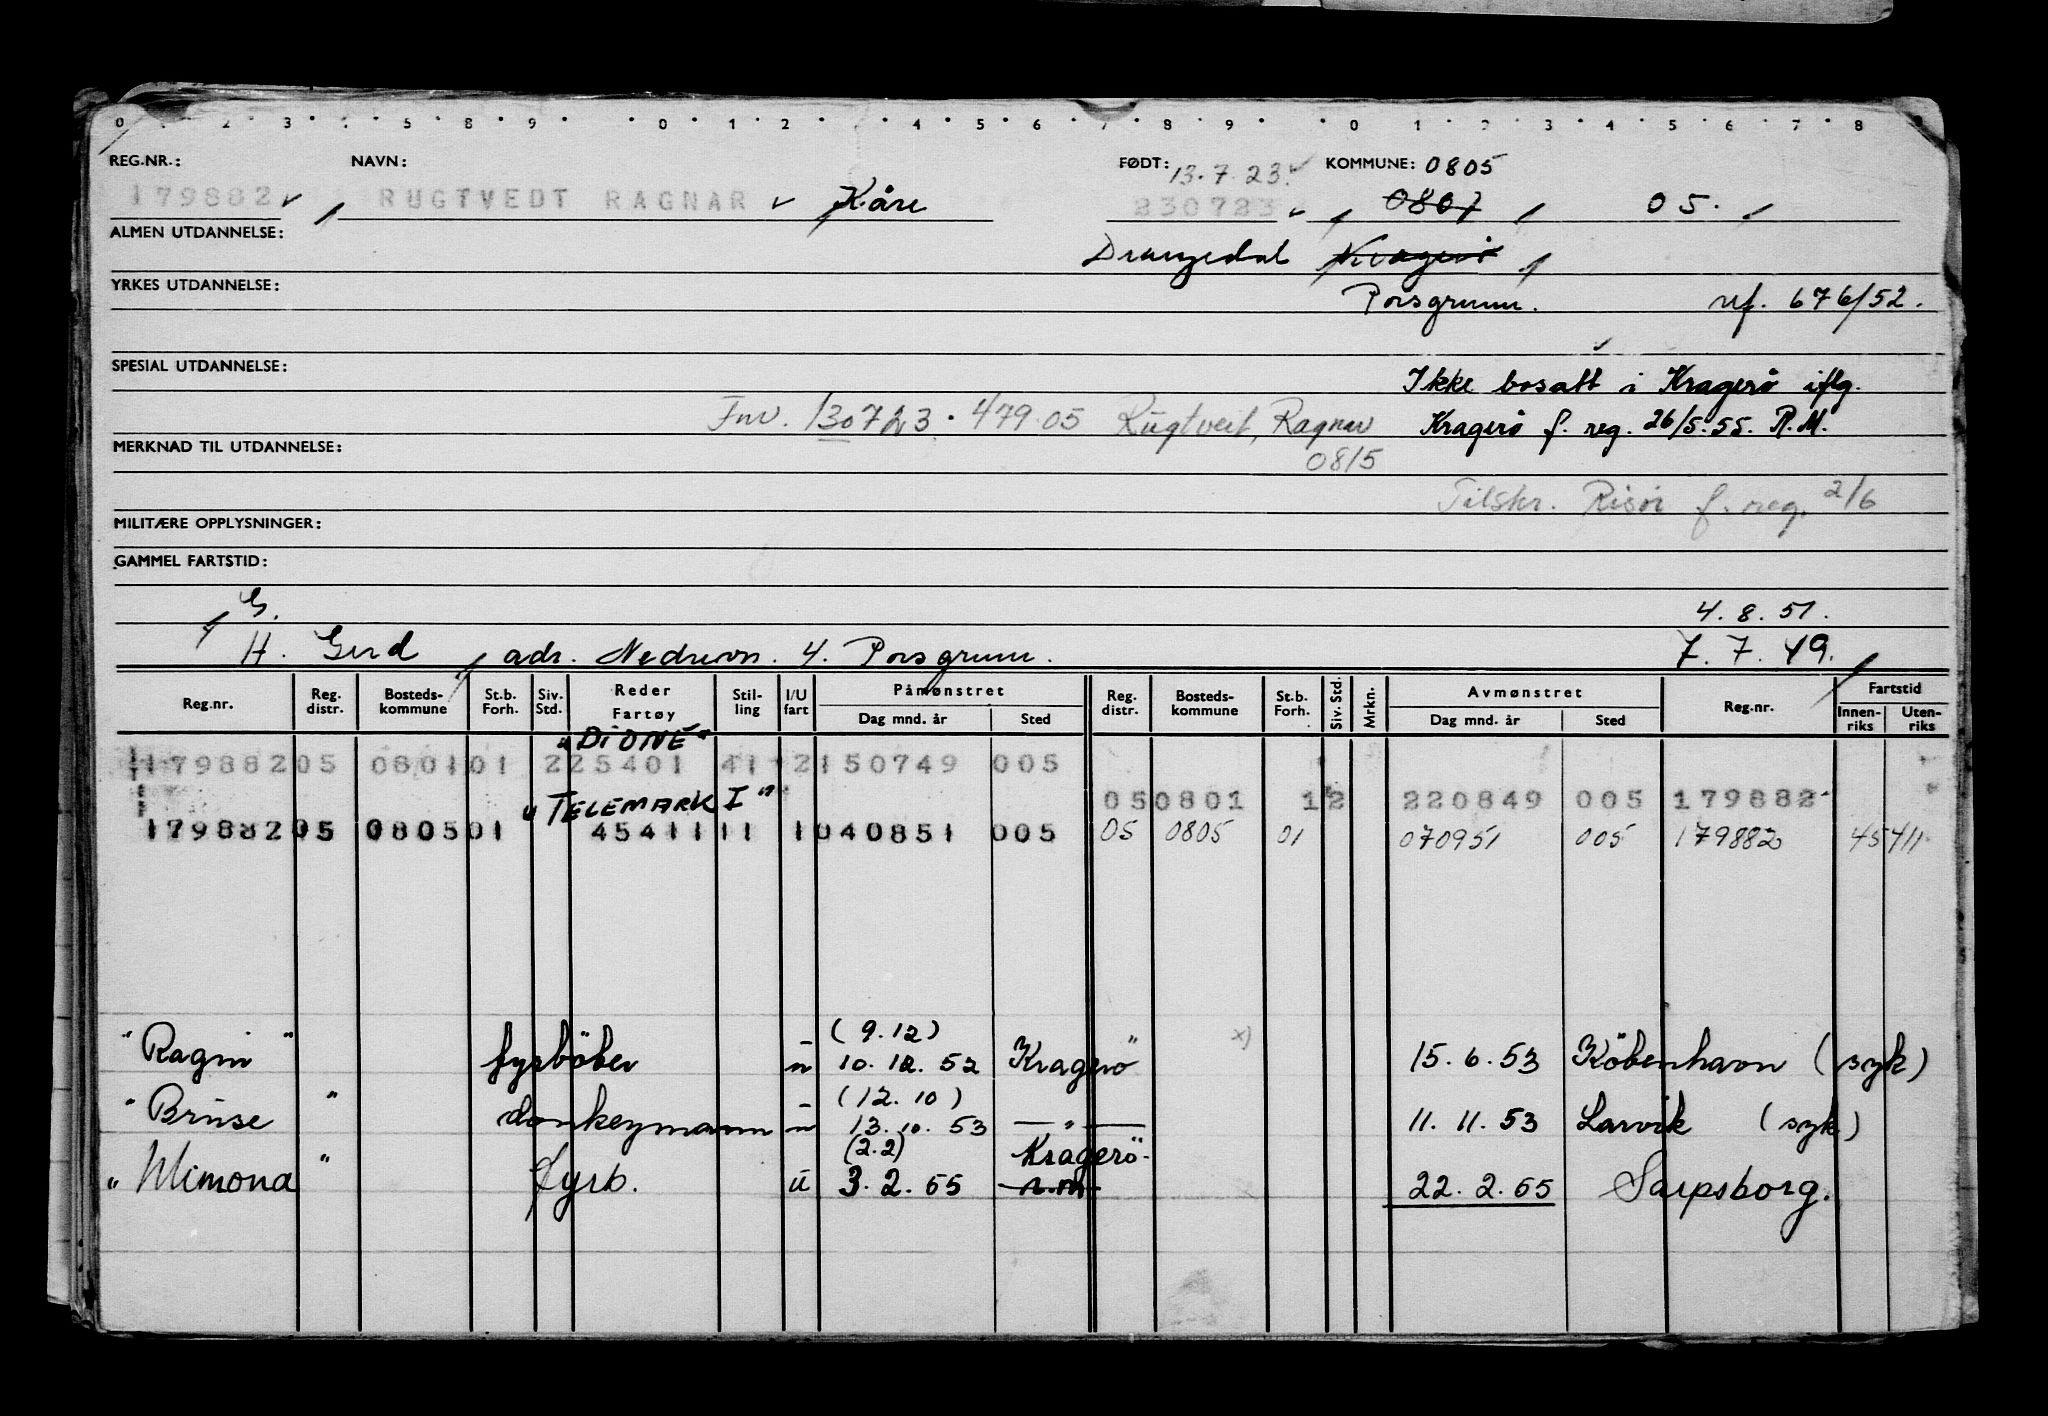 0 2 3 5 8 9 0 1 2 4 5 6 7 8 9 0 1 2 3 4 5 6 7 8
REG.NR.: NAVN: FØDT: 13.7.23. KOMMUNE: 0805
179882 RUGTVEDT RAGNAR Kåre 230723 0807 05.
ALMEN UTDANNELSE: Drangedal Kragerö
YRKES UTDANNELSE: Porsgrunn. nf. 676/52.
SPESIAL UTDANNELSE: Ikke bosatt i Kragerö iflg.
Fnr. 130723.479.05 Rugtveit, Ragnar Kragerö f. reg. 26/5.55. R.M.
MERKNAD TIL UTDANNELSE: 0815
Tilskr. Risör f. reg. 2/6
MILITÆRE OPPLYSNINGER:
GAMMEL FARTSTID:
G. 4.8.51.
H. Gerd adr. Nedrevn. 4. Porsgrunn. 7.7.49.
Reg.nr. Reg. distr. Bosteds-kommune St.b. Forh. Siv. Std. Reder Fartøy Stil-ling I/U fart Påmønstret Dag mnd. år Sted Reg. distr. Bosteds-kommune St.b. Forh. Siv. Std. Mrkn. Avmønstret Dag mnd. år Sted Reg.nr. Fartstid Innen-riks Uten-riks
"DIONE"
179882 05 0801 01 225401 41 2 150749 005
"TELEMARK I" 05 0801 12 220849 005 179882
179882 05 0805 01 45411 11 1 040851 005 05 0805 01 070951 005 179882 45411
(9.12) x)
"Ragni" fyrböter u 10.12.52 Kragerö 15.6.53 Köbenhavn (syk)
(12.10)
"Bruse" donkeymann u 13.10.53 —"— 11.11.53 Larvik (syk)
(2.2) Kragerö
"Mimona" fyrb. u 3.2.55 22.2.55 Sarpsborg.